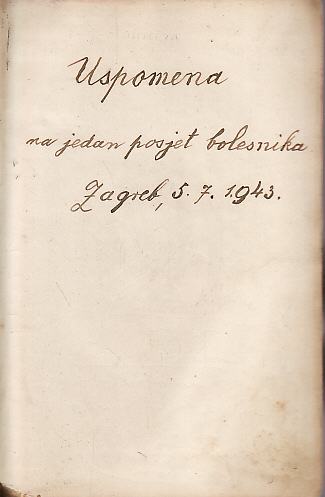 Uspomena
na jedan posjet bolesnika
Zagreb, 5. 7. 1943.